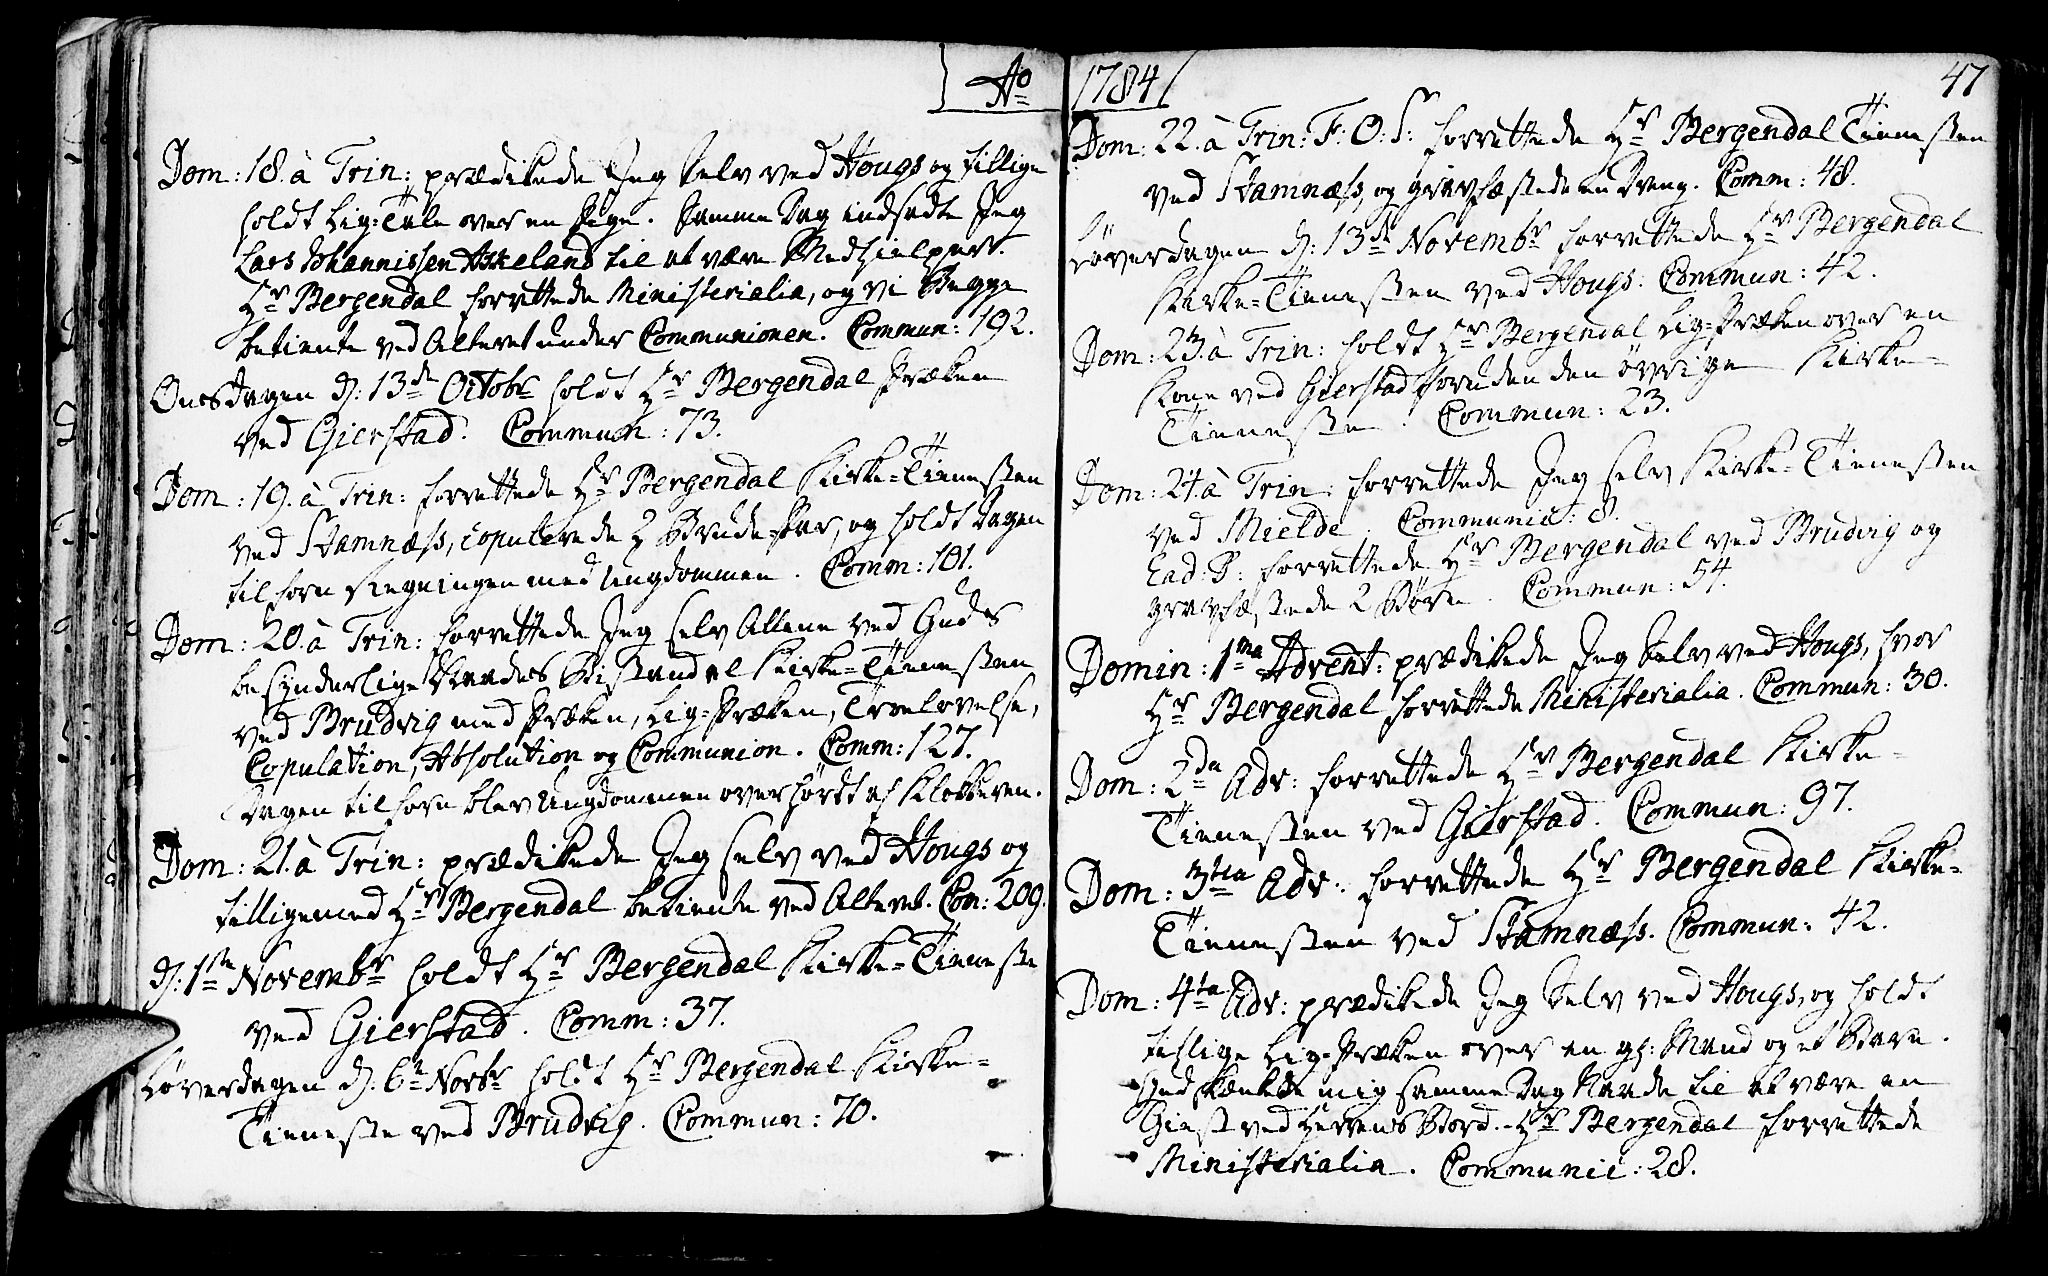 Ao 1784
47
Dom: 18. à Trin: prædikede Jeg selv ved Hougs og tillige
holdt Lig-Tale over en Pige. Samme Dag indsadte Jeg
Lars Johannissen Askeland til at være Medhielper.
Hr Bergendal forrettede Ministerialia, og vi Begge
betiente ved Alteret under Communionen. Commun: 192.
Onsdagen d: 13de Octobr holdt Hr Bergendal Præken
ved Gierstad. Commun: 73.
Dom: 19. à Trin: forrettede Hr Bergendal Kirke-Tienesten
ved Stamnæss, copulerede 2 Brude-Par, og holdt Dagen
tilforn Regningen med Ungdommen. Comm: 101.
Dom: 20. à Trin: forrettede Jeg selv Allene ved Guds
besynderlige Naades Bistand al Kirke-Tienesten
ved Brudvig med Præken, Lig-Præken, Trolovelse,
Copulation, Absolution og Communion. Comm: 127.
Dagen tilforn blev Ungdommen overhördt af Klokkeren.
Dom: 21. à Trin: prædikede Jeg selv ved Hougs og
tilligemed Hr Bergendal betiente ved Alteret. Com: 209.
d: 1ste Novembr holdt Hr Bergendal Kirke-Tieneste
ved Gierstad. Comm: 37.
Löverdagen d: 6te Novbr holdt Hr Bergendal Kirke-
Tieneste ved Brudvig. Commun: 70.
Dom: 22. à Trin: F: O: S: forrettede Hr Bergendal Tienesten
ved Stamnæss, og gravfæstede en Dreng. Comm: 48.
Löverdagen d: 13de Novembr forrettede Hr Bergendal
Kirke-Tienesten ved Hougs. Commun: 42.
Dom: 23. à Trin: holdt Hr Bergendal Lig-Præken over en
Kone ved Gierstad foruden den övrige Kirke-
Tieneste. Commun: 23.
Dom: 24. à Trin: forrettede Jeg selv Kirke-Tienesten
ved Mielde. Communic: 8.
Ead: D: forrettede Hr Bergendal ved Brudvig og
gravfæstede 2 Börn. Commun: 54.
Domin: 1ma Advent: prædikede Jeg selv ved Hougs, hvor
Hr Bergendal forrettede Ministerialia. Commun: 30.
Dom: 2da Adv: forrettede Hr Bergendal Kirke-
Tienesten ved Gierstad. Commun: 97.
Dom: 3tia Adv: forrettede Hr Bergendal Kirke-
Tienesten ved Stamnæss. Commun: 42.
Dom: 4ta Adv: prædikede Jeg selv ved Hougs, og holdt
tillige Lig-Præken over en gl: Mand og et Barn.
Gud skenkte mig samme Dag Naade til at være en
Giest ved Herrens Bord. - Hr Bergendal forrettede
Ministerialia. Communic: 28.